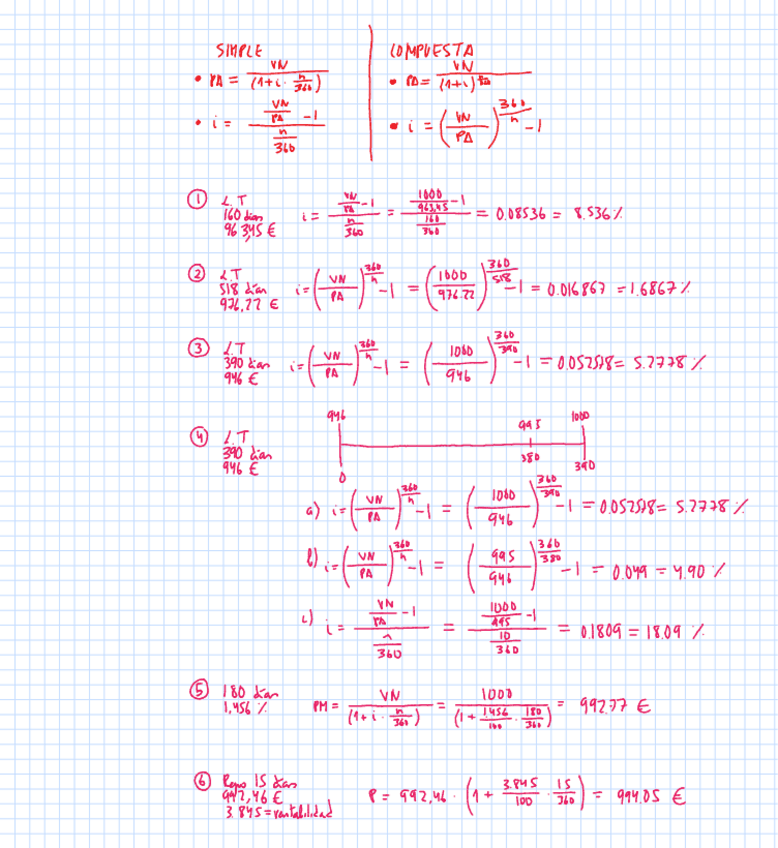 SIMPLE
• PA = VN / (1+i · n/360)
• i = (VN/PA - 1) / (n/360)
COMPUESTA
• PA = VN / (1+i)^(n/360)
• i = (VN/PA)^(360/n) - 1
① L.T
160 dias
963,45 €
i = (VN/PA - 1) / (n/360) = (1000/963,45 - 1) / (160/360) = 0.08536 = 8.536 %
② L.T
518 dias
976,22 €
i = (VN/PA)^(360/n) - 1 = (1000/976.22)^(360/518) - 1 = 0.016867 = 1.6867 %
③ L.T
390 dias
946 €
i = (VN/PA)^(360/n) - 1 = (1000/946)^(360/390) - 1 = 0.052578 = 5.2778 %
④ L.T
390 dias
946 €
946 995 1000
0 380 390
a) i = (VN/PA)^(360/n) - 1 = (1000/946)^(360/390) - 1 = 0.052578 = 5.2778 %
b) i = (VN/PA)^(360/n) - 1 = (995/946)^(360/380) - 1 = 0.049 = 4.90 %
c) i = (VN/PA - 1) / (n/360) = (1000/995 - 1) / (10/360) = 0.1809 = 18.09 %
⑤ 180 dias
1,456 %
PM = VN / (1+i · n/360) = 1000 / (1 + 1.456/100 · 180/360) = 992.77 €
⑥ Repo 15 dias
992,46 €
3.845 = rentabilidad
P = 992,46 · (1 + 3.845/100 · 15/360) = 994.05 €